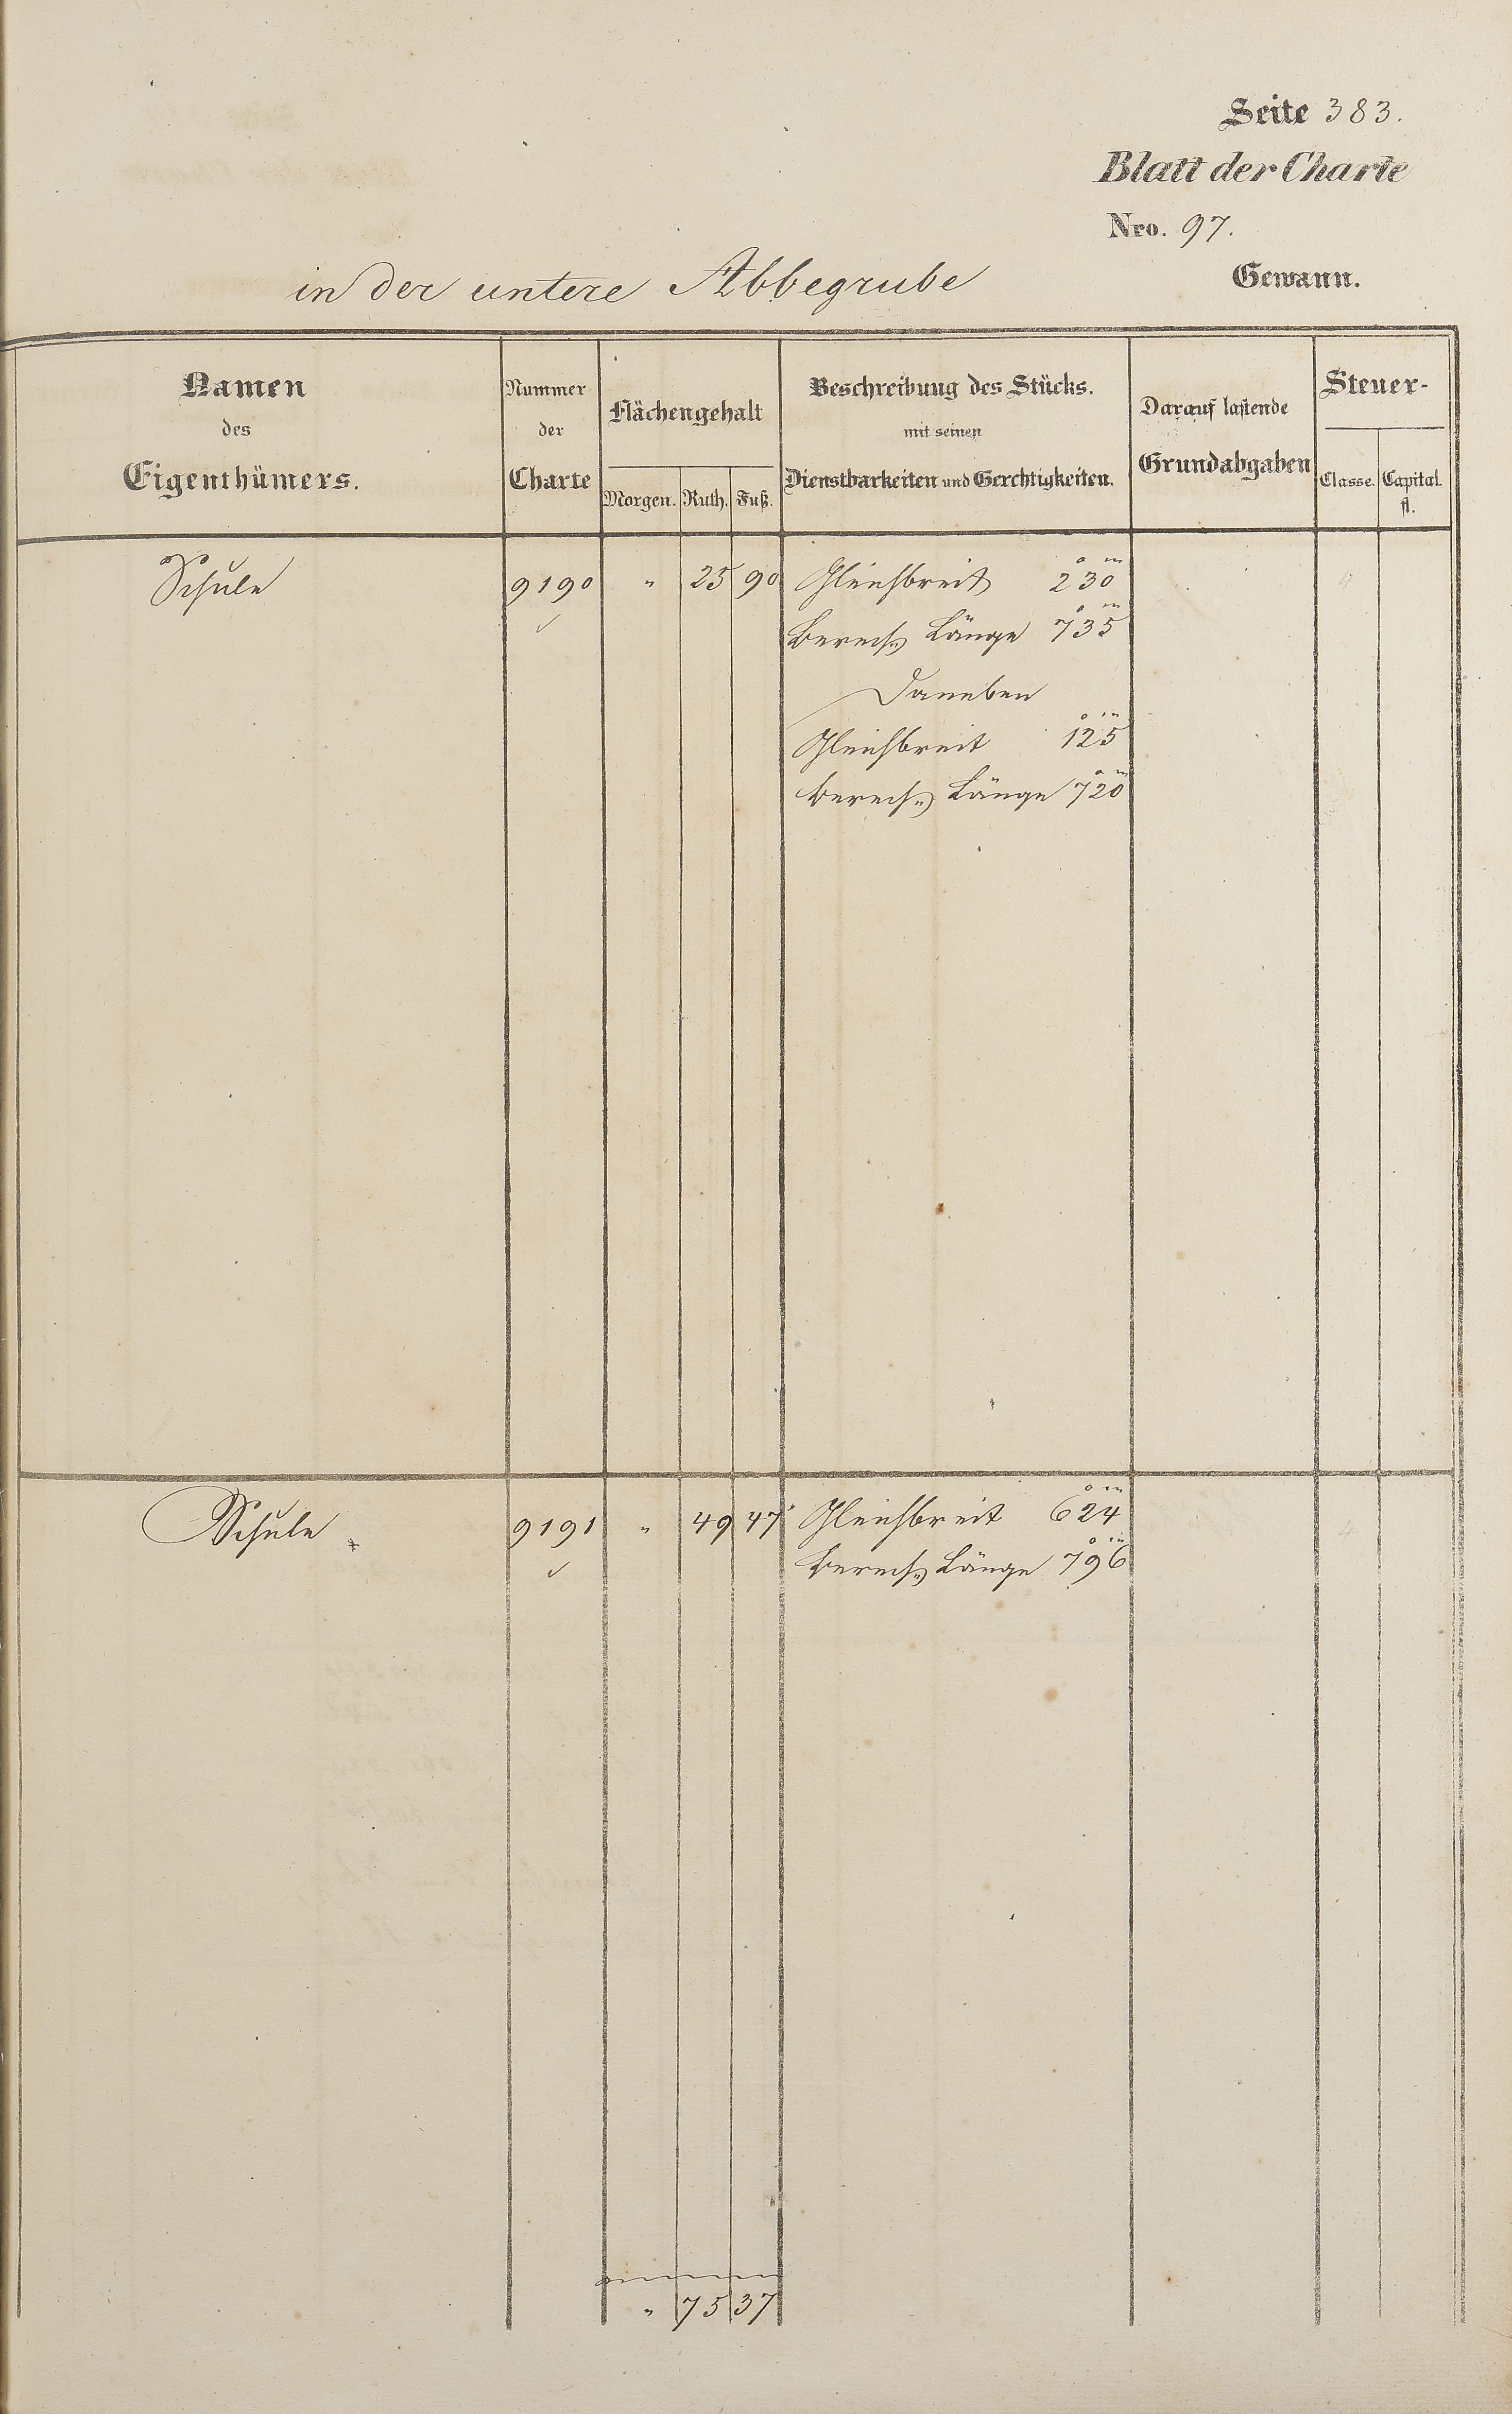 Seite 383.
Blatt der Charte
Nro. 97.
in der untere Abbegrube Gewann.
Namen des Eigenthümers.
Nummer der Charte
Flächengehalt
Morgen. Ruth. Fuß.
Beschreibung des Stücks.
mit seinen
Dienstbarkeiten und Gerchtigkeiten.
Darauf lastende
Grundabgaben
Steuer-
Classe. Capital. fl.
Schule 9190 " 25 90 Gleichbreit 2° 3' 0"
Berech. Länge 7° 3' 5"
Daneben
Gleichbreit 1° 2' 5"
Berech. Länge 7° 2' 0"
Schule 9191 " 49 47 Gleichbreit 6° 2' 4"
Berech. Länge 7° 9' 6"
" 75 37